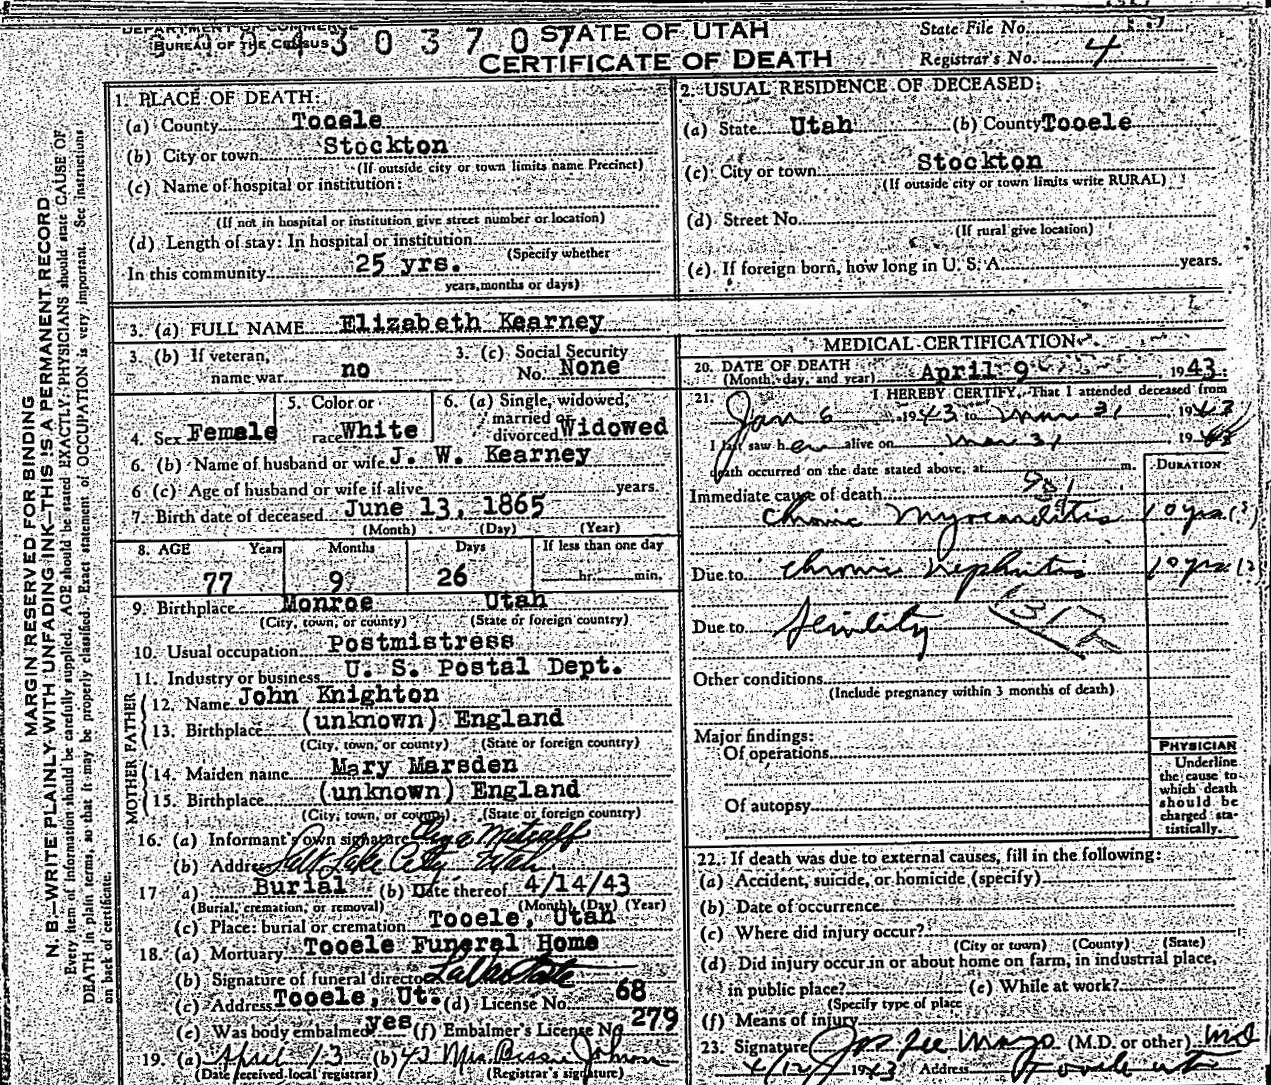 DEPARTMENT OF COMMERCE
BUREAU OF THE CENSUS
STATE OF UTAH
CERTIFICATE OF DEATH
State File No.
Registrar's No. 4
MARGIN RESERVED FOR BINDING
N. B.—WRITE PLAINLY WITH UNFADING INK—THIS IS A PERMANENT RECORD
Every item of information should be carefully supplied. AGE should be stated EXACTLY. PHYSICIANS should state CAUSE OF
DEATH in plain terms, so that it may be properly classified. Exact statement of OCCUPATION is very important. See instructions
on back of certificate.
1. PLACE OF DEATH:
(a) County Tooele
(b) City or town Stockton
(If outside city or town limits name Precinct)
(c) Name of hospital or institution:
(If not in hospital or institution give street number or location)
(d) Length of stay: In hospital or institution
(Specify whether
In this community 25 yrs.
years, months or days)
2. USUAL RESIDENCE OF DECEASED:
(a) State Utah (b) County Tooele
(c) City or town Stockton
(If outside city or town limits write RURAL)
(d) Street No.
(If rural give location)
(e) If foreign born, how long in U. S. A. years.
3. (a) FULL NAME Elizabeth Kearney
3. (b) If veteran, name war no
3. (c) Social Security No. None
4. Sex Female
5. Color or race White
6. (a) Single, widowed, married or divorced Widowed
6. (b) Name of husband or wife J. W. Kearney
6 (c) Age of husband or wife if alive years.
7. Birth date of deceased June 13, 1865
(Month) (Day) (Year)
8. AGE Years Months Days If less than one day
77 9 26 hr. min.
9. Birthplace Monroe Utah
(City, town, or county) (State or foreign country)
10. Usual occupation Postmistress
11. Industry or business U. S. Postal Dept.
FATHER
12. Name John Knighton
13. Birthplace (unknown) England
(City, town, or county) (State or foreign country)
MOTHER
14. Maiden name Mary Marsden
15. Birthplace (unknown) England
(City, town, or county) (State or foreign country)
16. (a) Informant's own signature Eliza Metcalf
(b) Address Salt Lake City Utah
17 a) Burial (b) Date thereof 4/14/43
(Burial, cremation, or removal) (Month) (Day) (Year)
(c) Place: burial or cremation Tooele, Utah
18. (a) Mortuary Tooele Funeral Home
(b) Signature of funeral director
(c) Address Tooele, Ut. (d) License No. 68
(e) Was body embalmed yes (f) Embalmer's License No. 279
19. (a) April 13 (b) 43 Mrs. Bessie Johnson
(Date received local registrar) (Registrar's signature)
MEDICAL CERTIFICATION
20. DATE OF DEATH April 9 1943.
(Month, day, and year)
21. I HEREBY CERTIFY, That I attended deceased from
Jan 6 1943 to Mar 31 1943
I last saw her alive on Mar 31 1943
death occurred on the date stated above, at m.
DURATION
Immediate cause of death
Chronic Myocarditis 10 yrs (?)
Due to Chronic Nephritis 10 yrs (?)
Due to Senility
Other conditions
(Include pregnancy within 3 months of death)
Major findings:
Of operations
Of autopsy
PHYSICIAN
Underline
the cause to
which death
should be
charged sta-
tistically.
22. If death was due to external causes, fill in the following:
(a) Accident, suicide, or homicide (specify)
(b) Date of occurrence
(c) Where did injury occur?
(City or town) (County) (State)
(d) Did injury occur in or about home on farm, in industrial place,
in public place? (e) While at work?
(Specify type of place
(f) Means of injury
23. Signature Jos Lee Mayo (M.D. or other) MD
4/12/ 1943 Address Tooele Ut